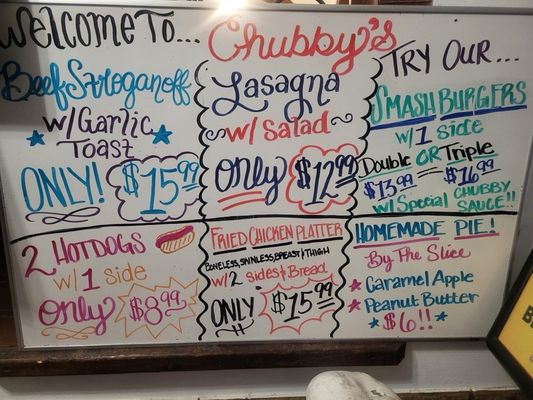 Welcome To...
Chubby's
Try Our...
Beef Stroganoff
w/Garlic
Toast
ONLY! $15.99
Lasagna
w/ Salad
Only $12.99
Smash Burgers
w/ 1 side
Double OR Triple
$13.99 $16.99
w/ Special Chubby
Sauce!!
2 Hotdogs
w/ 1 side
Only $8.99
Fried Chicken Platter
Boneless, Skinless, Breast & Thigh
w/ 2 sides & Bread
Only $15.99
Homemade Pie!
By The Slice
Caramel Apple
Peanut Butter
$6!!